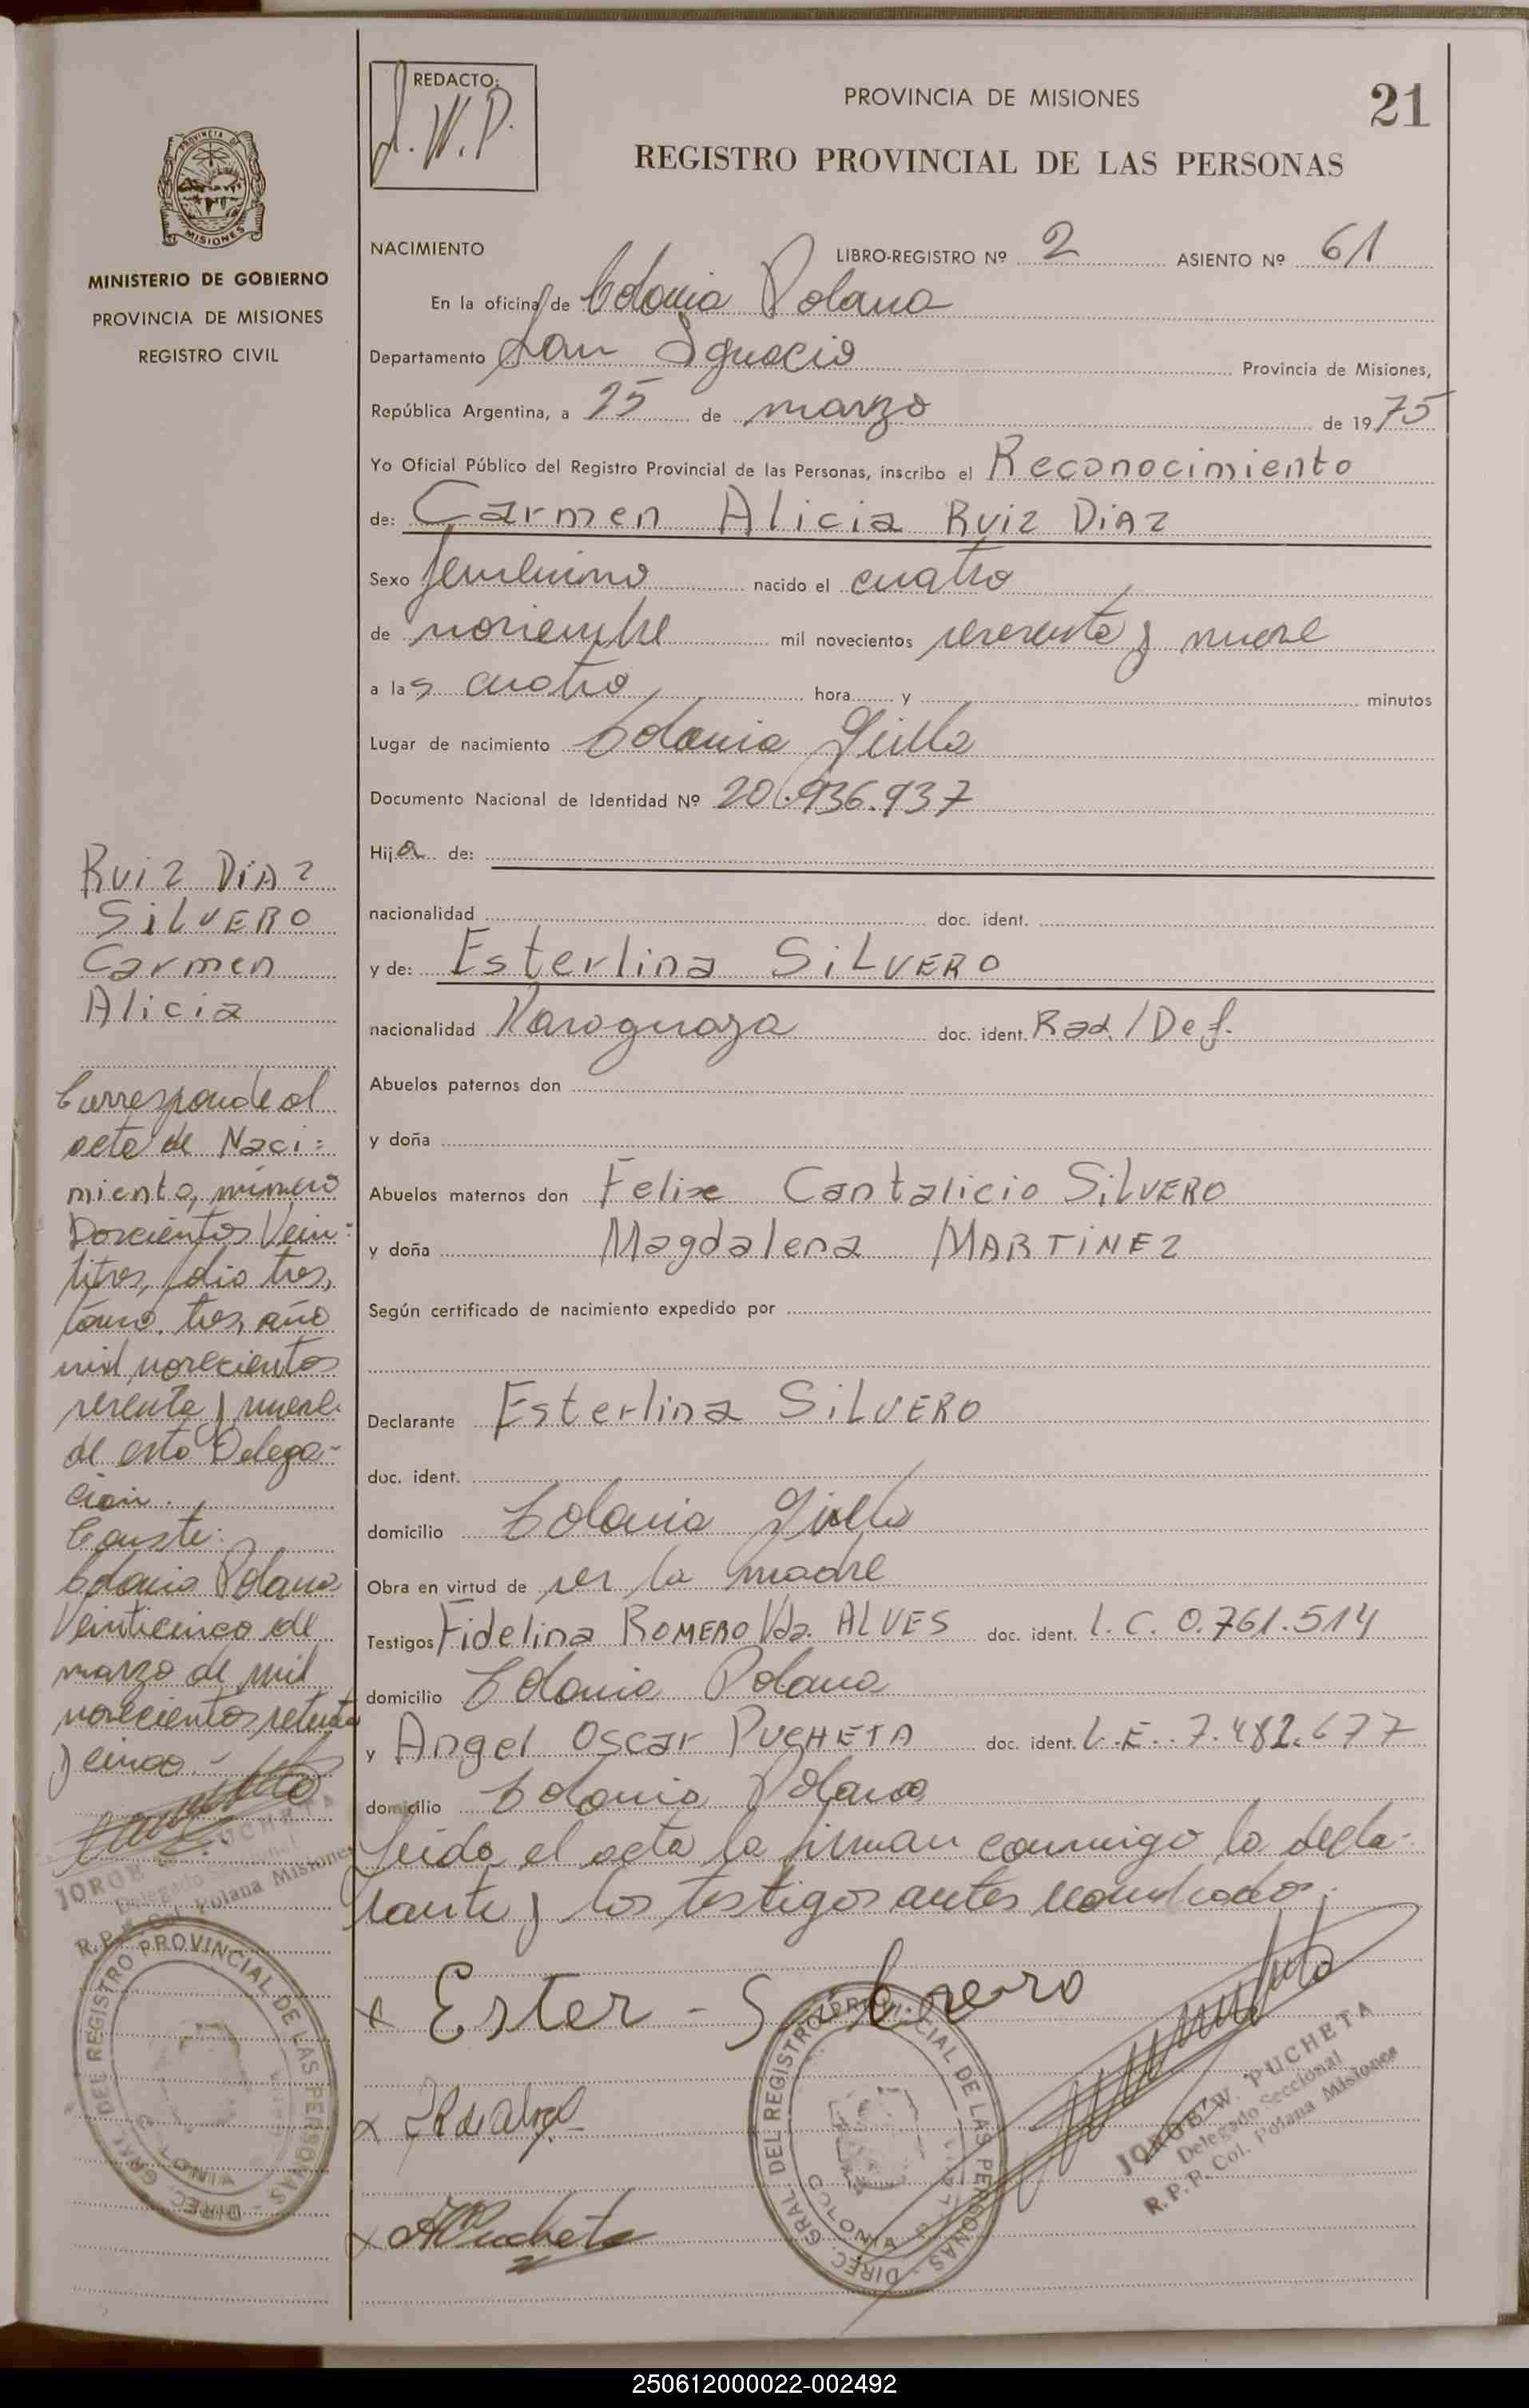 REDACTO:
J.W.P.
PROVINCIA DE MISIONES
21
REGISTRO PROVINCIAL DE LAS PERSONAS
MISIONES
MINISTERIO DE GOBIERNO
PROVINCIA DE MISIONES
REGISTRO CIVIL
NACIMIENTO LIBRO-REGISTRO Nº 2 ASIENTO Nº 61
En la oficina de Colonia Polana
Departamento San Ignacio Provincia de Misiones,
República Argentina, a 25 de marzo de 1975
Yo Oficial Público del Registro Provincial de las Personas, inscribo el Reconocimiento
de: Carmen Alicia RUIZ DIAZ
Sexo femenino nacido el cuatro
de noviembre mil novecientos sesenta y nueve
a las cuatro hora y minutos
Lugar de nacimiento Colonia
Documento Nacional de Identidad Nº 20.936.937
Hija de:
nacionalidad doc. ident.
y de: Esterlina SILVERO
nacionalidad Paraguaya doc. ident. Rad./Def.
Abuelos paternos don
y doña
Abuelos maternos don Felix Cantalicio SILVERO
y doña Magdalena MARTINEZ
Según certificado de nacimiento expedido por
Declarante Esterlina SILVERO
doc. ident.
domicilio Colonia
Obra en virtud de ser la madre
Testigos Fidelina ROMERO Vda. ALVES doc. ident. L.C. 0.761.514
domicilio Colonia Polana
y Angel Oscar PUCHETA doc. ident. L.E. 7.482.677
domicilio Colonia Polana
Leida el acta la firman conmigo la decla-
rante y los testigos antes nombrados.
RUIZ DIAZ
SILVERO
Carmen
Alicia
Corresponde al
acta de Naci=
miento, número
Doscientos Vein=
titres, folio tres,
tomo tres, año
mil novecientos
sesenta y nueve
de esta Delega-
cion.
Conste:
Colonia Polana
Veinticinco de
marzo de mil
novecientos setenta
y cinco.-
JORGE W. PUCHETA
Delegado Seccional
R.P.P. Col. Polana Misiones
DIREC. GRAL. DEL REGISTRO PROVINCIAL DE LAS PERSONAS
Ester -
DIREC. GRAL. DEL REGISTRO PROVINCIAL DE LAS PERSONAS
COLONIA
JORGE W. PUCHETA
Delegado Seccional
R.P.P. Col. Polana Misiones
APucheta
250612000022-002492